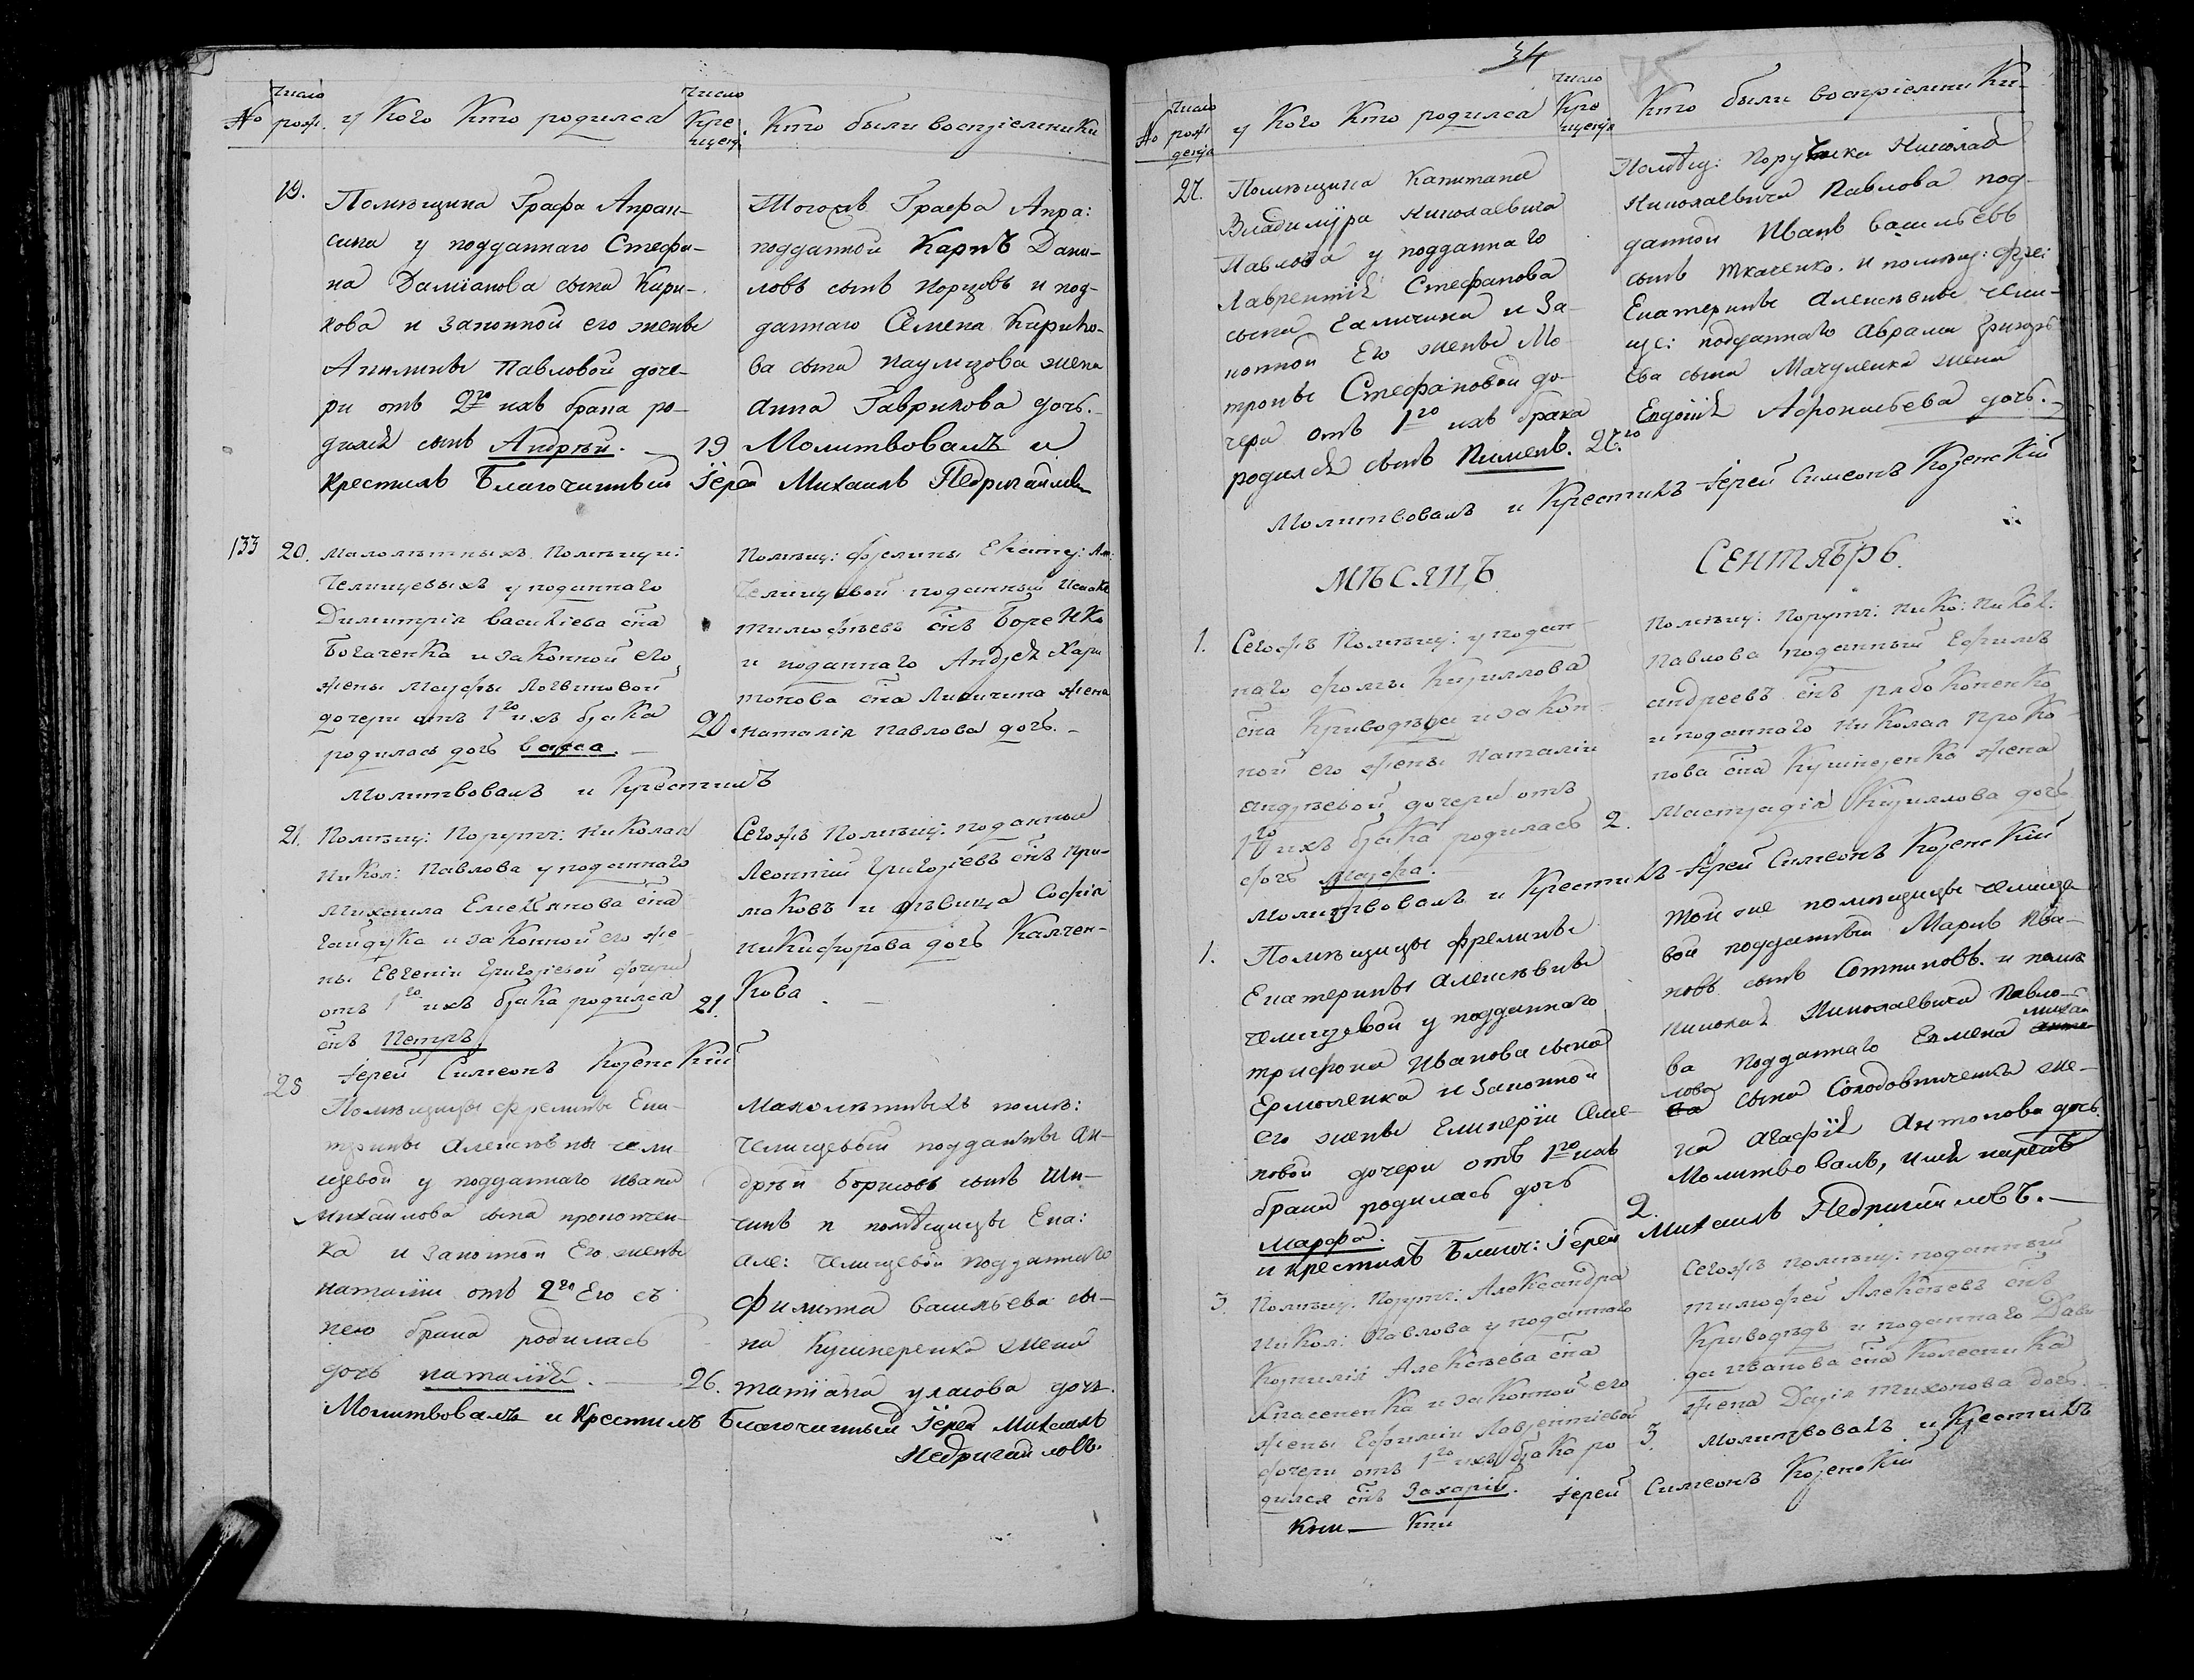 №
число рож.
у Кого Кто родился
число Кре щен.
Кто были воспріемники
19.
Помѣщика Графа Апрак-
сина у подданнаго Стефа-
на Даміанова сына Кири-
кова и законной его жены
Акилины Павловой доче-
ри отъ 2го ихъ брака ро-
дился сынъ Андрѣй.
19
Тогожъ Графа Апра:
подданной Карпъ Дани-
ловъ сынъ и под-
даннаго Семена Кирико-
ва сына жена
Анна Гаврикова дочь.
Молитвовалъ и
крестилъ Благочинный Іерей Михаилъ Недригайловъ
133
20.
Малолѣтныхъ Помѣщи:
Челищевыхъ у поданнаго
Димитрія Василіева сна
Богаченка и законной его
жены Марфы Логвиновой
дочери отъ 1го ихъ брака
родилась дочь Васса.
20.
Помѣщ: фрелины Екатер: Ал:
Челищевой поданный
Тимофѣевъ снъ Боренко
и поданнаго Андрея Хари
тонова сна Личичина жена
Наталія Павлова дочь.
Молитвовалъ и Крестилъ
21.
Помѣщ: Порутч: Николая
Никол: Павлова у поданнаго
Михаила Емельянова сна
Гайдука и законной его же-
ны Евгеніи Григоріевой дочери
отъ 1го ихъ брака родился
снъ Петръ
21.
Сегожъ Помѣщ: поданные
Леонтій Григоріевъ снъ При-
маковъ и дѣвица Софія
Никифорова дочь Калчен-
кова.
Іерей Симеонъ Козенскій
25
Помѣщицы фрелины Ека-
трины Алексѣвны Чели-
щевой у подданнаго Ивана
Михаилова сына Прокопен-
ка и законной Его жены
Наталіи отъ 2го Его съ
нею брака родилась
дочь Наталія.
26.
Малолѣтныхъ помѣ:
Челищевыи подданные Ан-
дрѣй Борисовъ сынъ Ши-
чинъ и помѣщицы Ека:
Але: Челищевой подданнаго
Филипа Васильева сы-
на Кушнеренка жена
Татіана Уласова дочь.
Молитвовалъ и Крестилъ Благочинный Іерей Михаилъ
Недригайловъ.
34
75
№
число рож денія
у Кого Кто родился
число Кре щенія
Кто были воспріемники
27.
Помѣщика Капитана
Владимира Николаевича
Павлова у подданнаго
Лаврентія Стефанова
сына Галичина и за-
конной Его жены Мо
троны Стефановой до-
чери отъ 1го ихъ брака
родился сынъ Пименъ.
27го
Помѣщ: Поручика Николая
Николаевича Павлова под-
данной Иванъ Васильевъ
сынъ Ткаченко. и помѣщ: фре:
Екатерины Алексѣвны Чели-
ще: подданнаго Абрама Григорь
ева сына Мачуленка жена
Евдокія Афонасьева дочь.
Молитвовалъ и Крестилъ Іерей Симеонъ Козенскій
МѢСЯЦЪ
СЕНТЯБРЬ.
1.
Сегожъ Помѣщ: у подан-
наго Фомы Кириллова
сна Криводѣда и закон-
ной его жены Наталіи
Андреевой дочери отъ
1го ихъ брака родилась
дочь Марфа.
2.
Помѣщ: Порутч: Нико: Никол:
Павлова поданный Ефимъ
Андреевъ снъ Рябоконенко
и поданнаго Николая Проко
пова сна Кушнеренко жена
Мастрадія Кириллова дочь
Молитвовалъ и Крестилъ Іерей Симеонъ Козенскій
1.
Помѣщицы фрелины
Екатерины Алексѣвны
Челищевой у подданнаго
Трифона Иванова сына
Ермоленка и законной
его жены Гликеріи Семе-
новой дочери отъ 1го ихъ
брака родилась дочь
Марфа.
2.
Той же помѣщицы Челище
вой подданный Маркъ Ива-
новъ сынъ Сотниковъ. и помѣ
Николая Николаевича Павло-
ва подданнаго Семена Михаи
лова сына Солодовниченка же-
на Агафія Антонова дочь.
Молитвовалъ, имя нарекъ
и крестилъ Благоч: Іерей Михаилъ Недригайловъ.
3.
Помѣщ: Порутч: Александра
Никол: Павлова у поданнаго
Корнилія Алексѣева сна
Спасененка и законной его
жены Ефиміи Лаврентіевой
дочери отъ 1го ихъ брака ро
дился снъ Захарій.
3.
Сегожъ помѣщ: поданный
Тимофей Алексѣевъ снъ
Криводѣдъ и поданнаго Дави
да Иванова сна Колесника
жена Дарія Тихонова дочь.
Молитвовалъ и Крестилъ
Іерей Симеонъ Козенскій